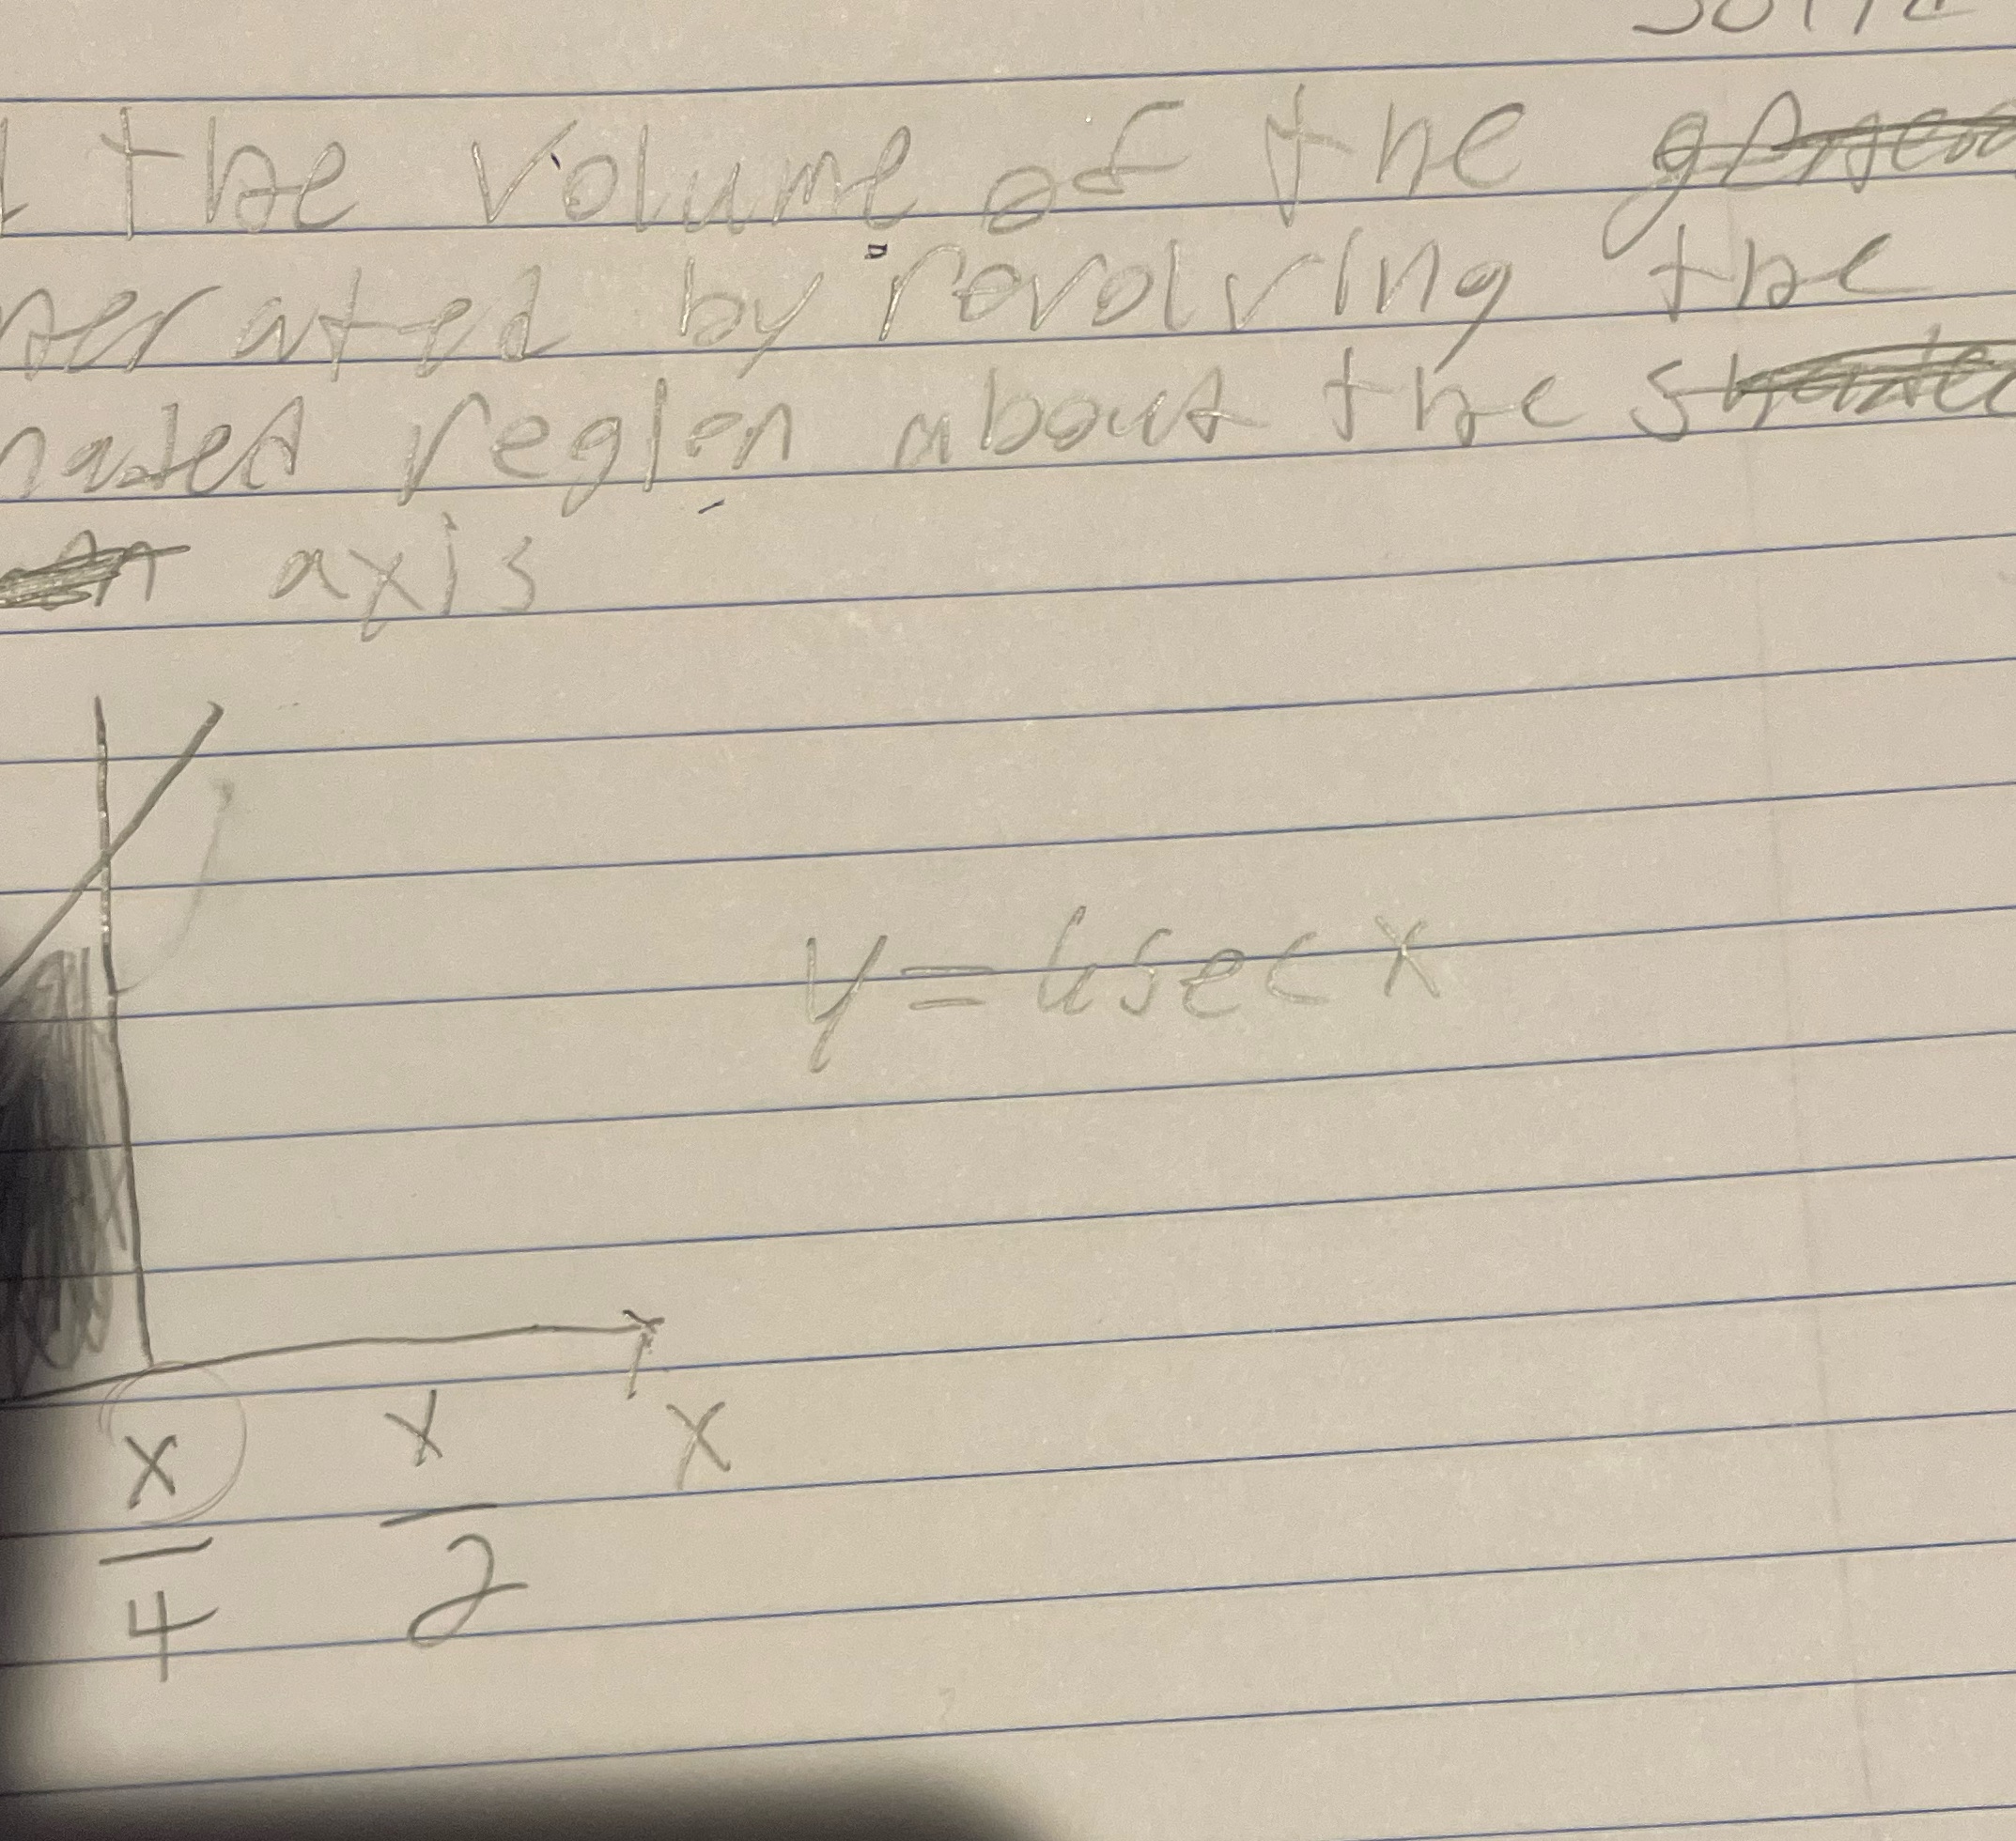 the volume of the
nerated by revolving the
haded region about the
axis
y = 6secx
x x x
4 2